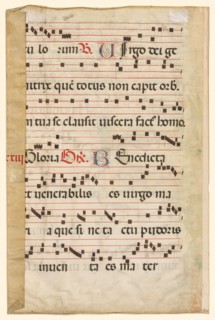 tu lo rum R. Virgo dei ge
nitrix que totus non capit orb.
in tua se clausit viscera fact homo
Gloria Ox. Benedicta
et venerabilis es virgo ma
ria que si ne ta ctu pudoris
inven ta es ma ter